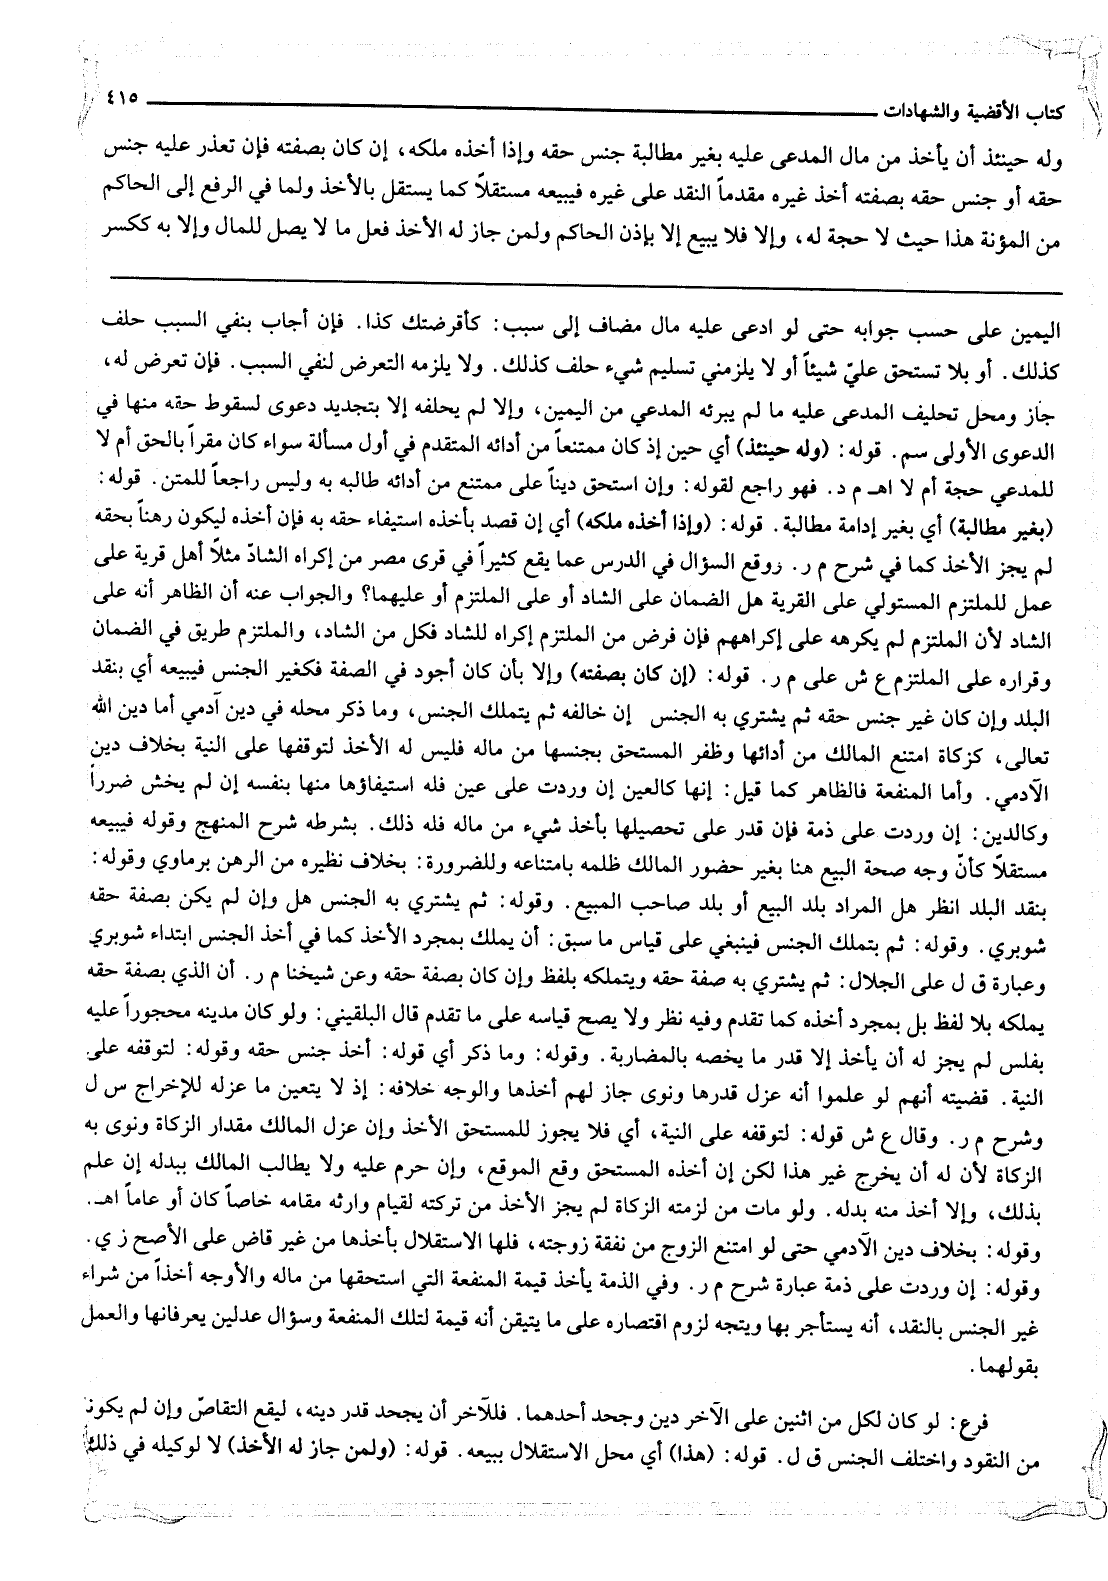 كتاب الأقضية والشهادات ٤١٥
وله حينئذ أن يأخذ من مال المدعى عليه بغير مطالبة جنس حقه وإذا أخذه ملكه، إن كان بصفته فإن تعذر عليه جنس
حقه أو جنس حقه بصفته أخذ غيره مقدماً النقد على غيره فيبيعه مستقلاً كما يستقل بالأخذ ولما في الرفع إلى الحاكم
من المؤنة هذا حيث لا حجة له، وإلا فلا يبيع إلا بإذن الحاكم ولمن جاز له الأخذ فعل ما لا يصل للمال وإلا به ككسر
اليمين على حسب جوابه حتى لو ادعى عليه مال مضاف إلى سبب: كأقرضتك كذا. فإن أجاب بنفي السبب حلف
كذلك. أو بلا تستحق عليّ شيئاً أو لا يلزمني تسليم شيء حلف كذلك. ولا يلزمه التعرض لنفي السبب. فإن تعرض له،
جاز ومحل تحليف المدعى عليه ما لم يبرئه المدعي من اليمين، وإلا لم يحلفه إلا بتجديد دعوى لسقوط حقه منها في
الدعوى الأولى سم. قوله: (وله حينئذ) أي حين إذ كان ممتنعاً من أدائه المتقدم في أول مسألة سواء كان مقراً بالحق أم لا
للمدعي حجة أم لا اهـ م د. فهو راجع لقوله: وإن استحق ديناً على ممتنع من أدائه طالبه به وليس راجعاً للمتن. قوله:
(بغير مطالبة) أي بغير إدامة مطالبة. قوله: (وإذا أخذه ملكه) أي إن قصد بأخذه استيفاء حقه به فإن أخذه ليكون رهناً بحقه
لم يجز الأخذ كما في شرح م ر. ووقع السؤال في الدرس عما يقع كثيراً في قرى مصر من إكراه الشادّ مثلاً أهل قرية على
عمل للملتزم المستولي على القرية هل الضمان على الشاد أو على الملتزم أو عليهما؟ والجواب عنه أن الظاهر أنه على
الشاد لأن الملتزم لم يكرهه على إكراههم فإن فرض من الملتزم إكراه للشاد فكل من الشاد، والملتزم طريق في الضمان
وقراره على الملتزم ع ش على م ر. قوله: (إن كان بصفته) وإلا بأن كان أجود في الصفة فكغير الجنس فيبيعه أي بنقد
البلد وإن كان غير جنس حقه ثم يشتري به الجنس إن خالفه ثم يتملك الجنس، وما ذكر محله في دين آدمي أما دين الله
تعالى، كزكاة امتنع المالك من أدائها وظفر المستحق بجنسها من ماله فليس له الأخذ لتوقفها على النية بخلاف دين
الآدمي. وأما المنفعة فالظاهر كما قيل: إنها كالعين إن وردت على عين فله استيفاؤها منها بنفسه إن لم يخش ضرراً
وكالدين: إن وردت على ذمة فإن قدر على تحصيلها بأخذ شيء من ماله فله ذلك. بشرطه شرح المنهج وقوله فيبيعه
مستقلاً كأنّ وجه صحة البيع هنا بغير حضور المالك ظلمه بامتناعه وللضرورة: بخلاف نظيره من الرهن برماوي وقوله:
بنقد البلد انظر هل المراد بلد البيع أو بلد صاحب المبيع. وقوله: ثم يشتري به الجنس هل وإن لم يكن بصفة حقه
شوبري. وقوله: ثم يتملك الجنس فينبغي على قياس ما سبق: أن يملك بمجرد الأخذ كما في أخذ الجنس ابتداء شوبري
وعبارة ق ل على الجلال: ثم يشتري به صفة حقه ويتملكه بلفظ وإن كان بصفة حقه وعن شيخنا م ر. أن الذي بصفة حقه
يملكه بلا لفظ بل بمجرد أخذه كما تقدم وفيه نظر ولا يصح قياسه على ما تقدم قال البلقيني: ولو كان مدينه محجوراً عليه
بفلس لم يجز له أن يأخذ إلا قدر ما يخصه بالمضاربة. وقوله: وما ذكر أي قوله: أخذ جنس حقه وقوله: لتوقفه على
النية. قضيته أنهم لو علموا أنه عزل قدرها ونوى جاز لهم أخذها والوجه خلافه: إذ لا يتعين ما عزله للإخراج س ل
وشرح م ر. وقال ع ش قوله: لتوقفه على النية، أي فلا يجوز للمستحق الأخذ وإن عزل المالك مقدار الزكاة ونوى به
الزكاة لأن له أن يخرج غير هذا لكن إن أخذه المستحق وقع الموقع، وإن حرم عليه ولا يطالب المالك ببدله إن علم
بذلك، وإلا أخذ منه بدله. ولو مات من لزمته الزكاة لم يجز الأخذ من تركته لقيام وارثه مقامه خاصاً كان أو عاماً اهـ.
وقوله: بخلاف دين الآدمي حتى لو امتنع الزوج من نفقة زوجته، فلها الاستقلال بأخذها من غير قاض على الأصح ز ي.
وقوله: إن وردت على ذمة عبارة شرح م ر. وفي الذمة يأخذ قيمة المنفعة التي استحقها من ماله والأوجه أخذاً من شراء
غير الجنس بالنقد، أنه يستأجر بها ويتجه لزوم اقتصاره على ما يتيقن أنه قيمة لتلك المنفعة وسؤال عدلين يعرفانها والعمل
بقولهما.
فرع: لو كان لكل من اثنين على الآخر دين وجحد أحدهما. فللآخر أن يجحد قدر دينه، ليقع التقاصّ وإن لم يكونا
من النقود واختلف الجنس ق ل. قوله: (هذا) أي محل الاستقلال ببيعه. قوله: (ولمن جاز له الأخذ) لا لوكيله في ذلك